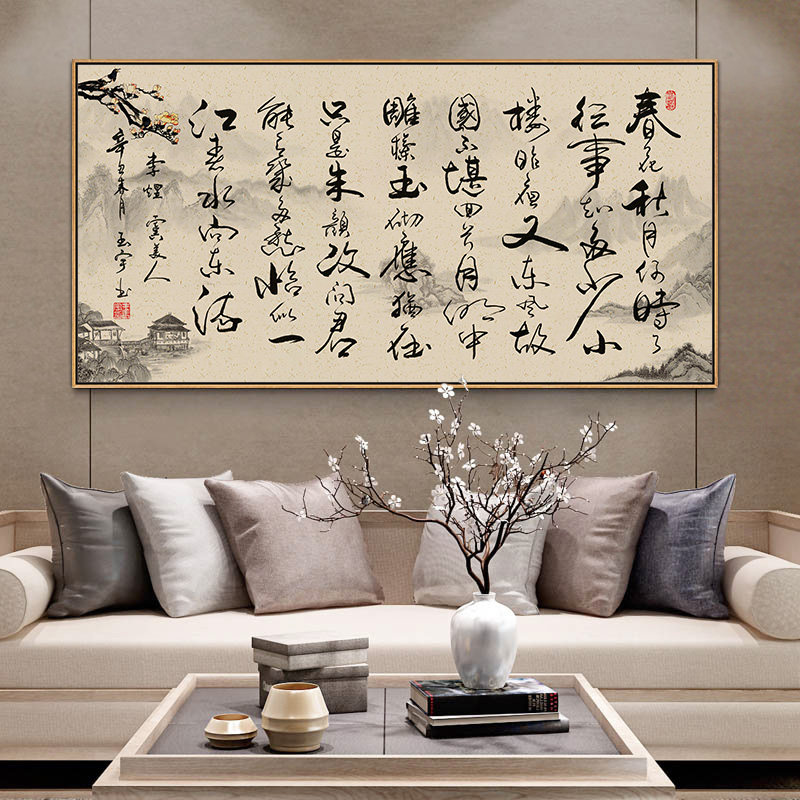 春花秋月何時了
往事知多少小
楼昨夜又东风故
國不堪回首月明中
雕欄玉砌應猶在
只是朱顏改问君
能有幾多愁恰似一
江春水向东流
李煜 虞美人
辛丑春月 玉宇书